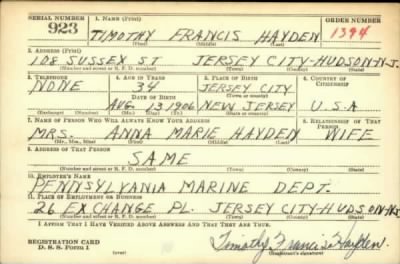 SERIAL NUMBER 1. NAME (Print) ORDER NUMBER
923 TIMOTHY FRANCIS HAYDEN 1394
(First) (Middle) (Last)
2. ADDRESS (Print)
108 SUSSEX ST JERSEY CITY-HUDSON-N.J.
(Number and street or R. F. D. number) (Town) (County) (State)
3. TELEPHONE 4. AGE IN YEARS 5. PLACE OF BIRTH 6. COUNTRY OF CITIZENSHIP
NONE 34 JERSEY CITY
DATE OF BIRTH (Town or county)
AUG. 13 1906 NEW JERSEY U.S.A
(Exchange) (Number) (Mo.) (Day) (Yr.) (State or country)
7. NAME OF PERSON WHO WILL ALWAYS KNOW YOUR ADDRESS 8. RELATIONSHIP OF THAT PERSON
MRS. ANNA MARIE HAYDEN WIFE
(Mr., Mrs., Miss) (First) (Middle) (Last)
9. ADDRESS OF THAT PERSON
SAME
(Number and street or R. F. D. number) (Town) (County) (State)
10. EMPLOYER'S NAME
PENNSYLVANIA MARINE DEPT.
11. PLACE OF EMPLOYMENT OR BUSINESS
26 EXCHANGE PL. JERSEY CITY-HUDSON-NJ
(Number and street or R. F. D. number) (Town) (County) (State)
I AFFIRM THAT I HAVE VERIFIED ABOVE ANSWERS AND THAT THEY ARE TRUE.
REGISTRATION CARD
D. S. S. Form 1 (over) Timothy Francis Hayden
(Registrant's signature)